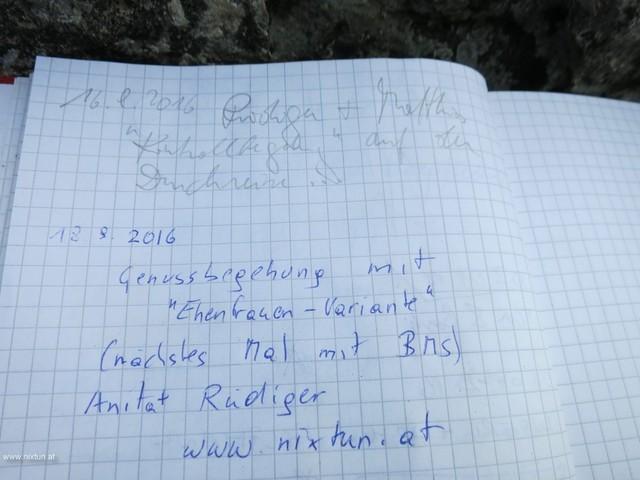 16.8.2016 Rüdiger + Matthias
" auf der
Durchreise
12 9. 2016
Genussbegehung mit
"Ehenfrauen-Variante"
(nächstes Mal mit BMS)
Anita+ Rüdiger
www.nixtun.at
www.nixtun.at